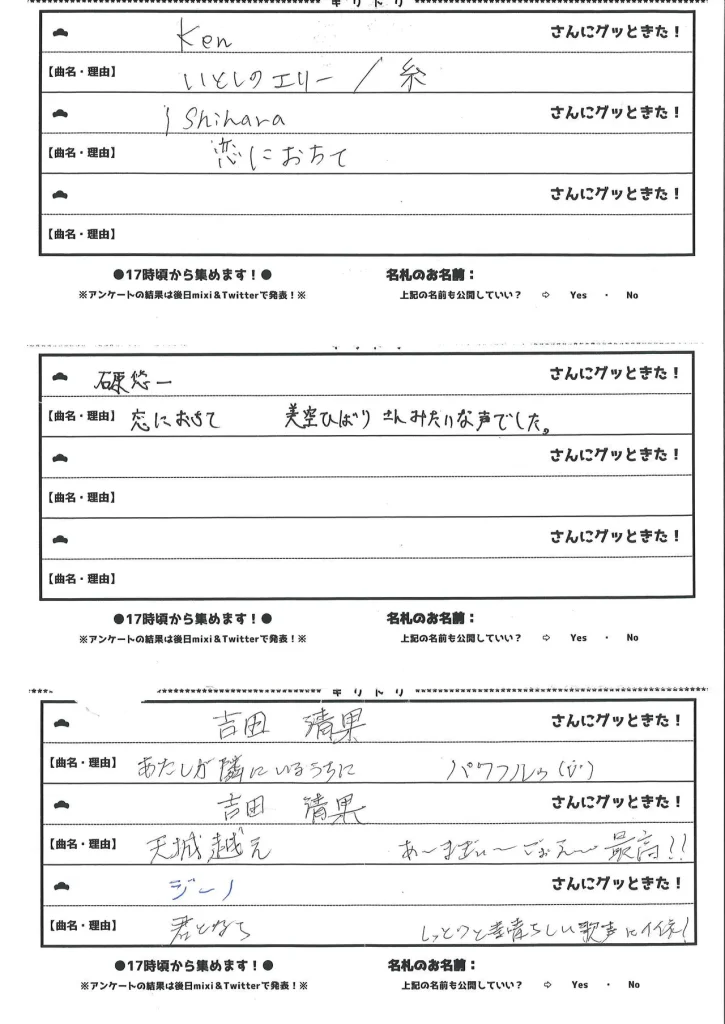 キリトリ
Ken さんにグッときた!
【曲名・理由】 いとしのエリー / 糸
Ishihara さんにグッときた!
【曲名・理由】 恋におちて
さんにグッときた!
【曲名・理由】
●17時頃から集めます!● 名札のお名前:
※アンケートの結果は後日mixi&Twitterで発表!※ 上記の名前も公開していい? ⇨ Yes ・ No
石原悠一 さんにグッときた!
【曲名・理由】 恋におちて 美空ひばりさんみたいな声でした。
さんにグッときた!
【曲名・理由】
さんにグッときた!
【曲名・理由】
●17時頃から集めます!● 名札のお名前:
※アンケートの結果は後日mixi&Twitterで発表!※ 上記の名前も公開していい? ⇨ Yes ・ No
キリトリ
吉田 清果 さんにグッときた!
【曲名・理由】 あたしが隣にいるうちに パワフルゥ
吉田 清果 さんにグッときた!
【曲名・理由】 天城越え あ〜まぎぃ〜ごぉえ〜 最高!!
ジーノ さんにグッときた!
【曲名・理由】 しっとりと素晴らしい歌声に
●17時頃から集めます!● 名札のお名前:
※アンケートの結果は後日mixi&Twitterで発表!※ 上記の名前も公開していい? ⇨ Yes ・ No